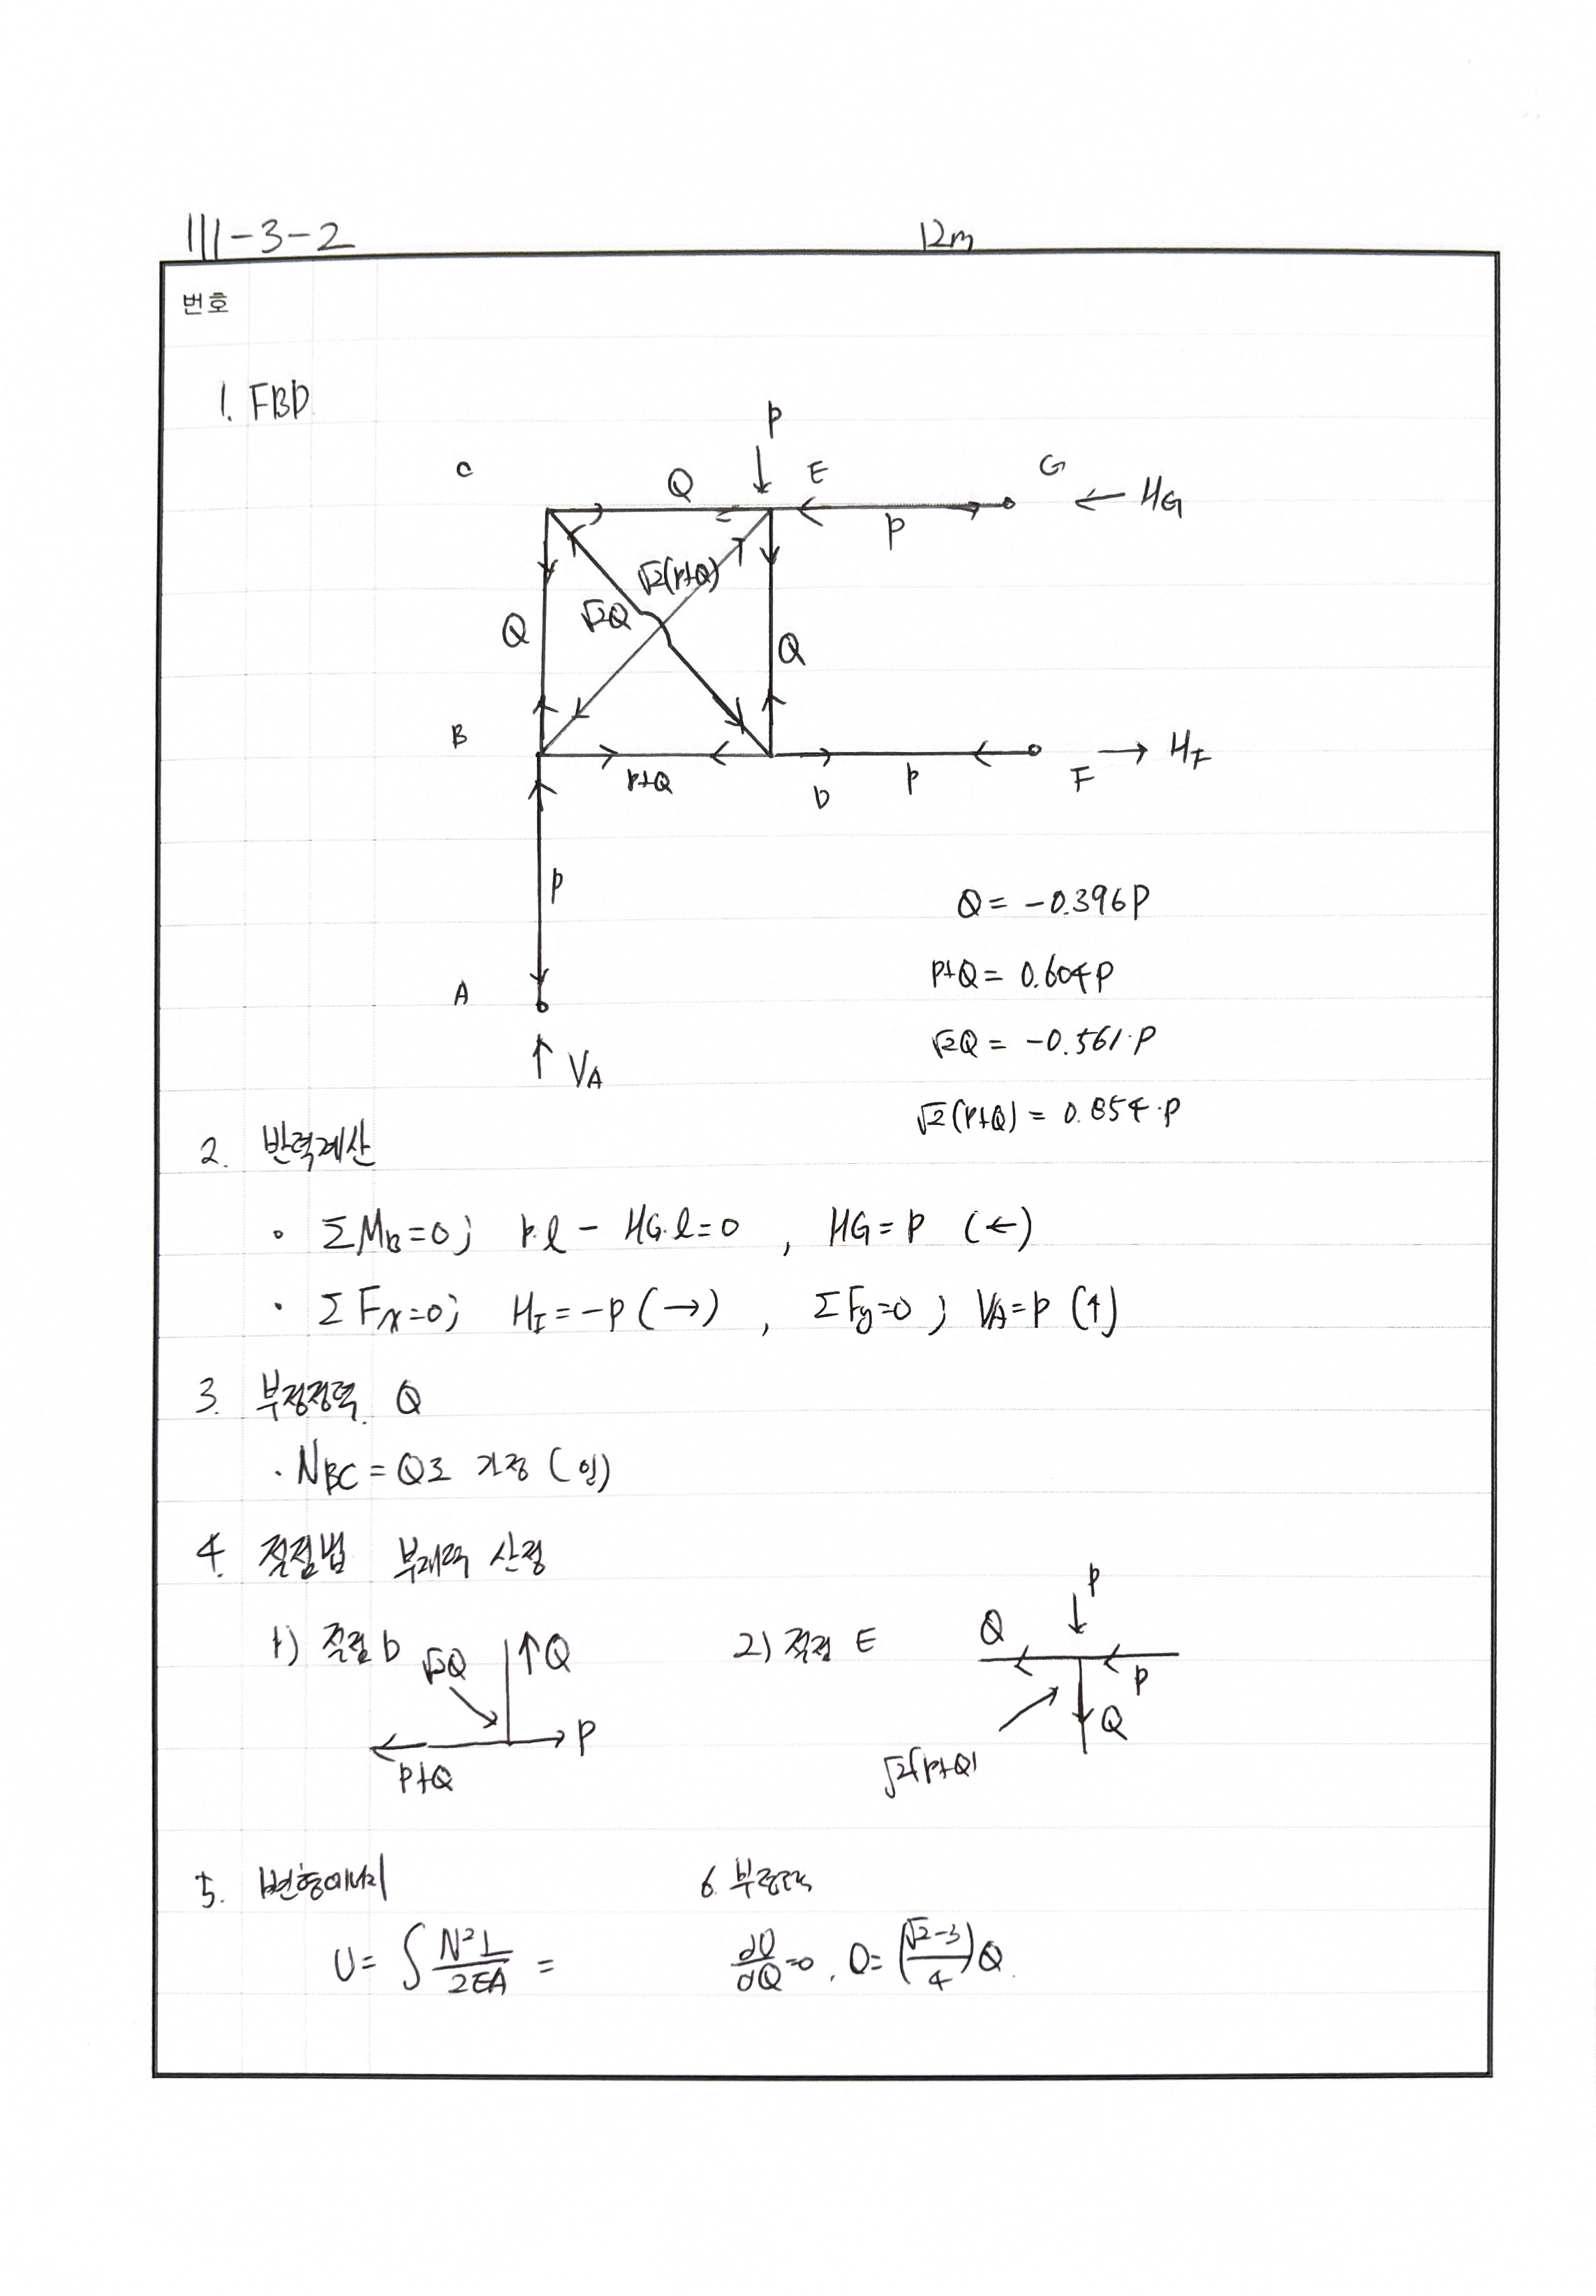 111-3-2 12m
번호
1. FBD
P
C Q E G ← HG
P
√2(P+Q)
√2Q
Q Q
B → HF
P+Q D P F
P
Q = -0.396P
P+Q = 0.604P
A
√2Q = -0.561·P
VA
√2(P+Q) = 0.854·P
2. 반력계산
∘ ΣMB=0; P·l - HG·l=0 , HG=P (←)
· ΣFx=0; HF=-P(→) , ΣFy=0; VA=P (↑)
3. 부정정력 Q
· NBC=Q로 가정 (인)
4. 절점법 부재력 산정
1) 절점 D √2Q ↑Q 2) 절점 E Q P
→ P P
P+Q Q
√2(P+Q)
5. 변형에너지 6. 부정정력
U= ∫ N²L/2EA = dU/dQ=0, Q= (√2-3/4)Q